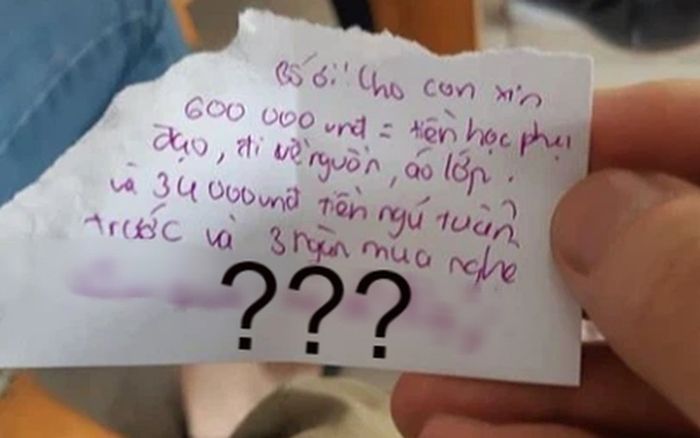 Bố ơi! Cho con xin
600 000 vnđ = tiền học phụ
đạo, đi về nguồn, áo lớp.
và 34 000 vnđ tiền ngủ tuần
trước và 3 ngàn mua nghe
???